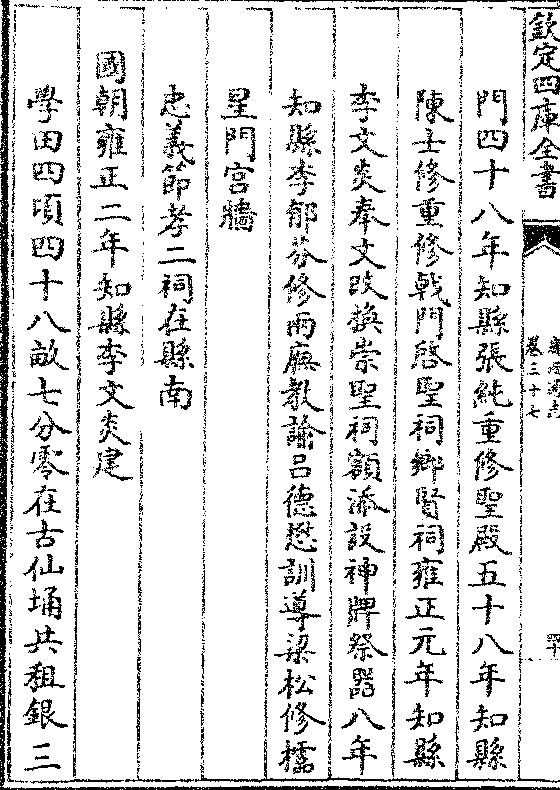 欽定四庫全書
卷三十七
門四十八年知縣張純重修聖殿五十八年知縣
陳士修重修戟門啓聖祠鄉賢祠雍正元年知縣
李文炎奉文改換崇聖祠額添設神牌祭器八年
知縣李郁芬修兩廡教諭吕德懋訓導梁松修櫺
星門宫牆
忠義節孝二祠在縣南
國朝雍正二年知縣李文炎建
學田四頃四十八畝七分零在古仙埇共租銀三